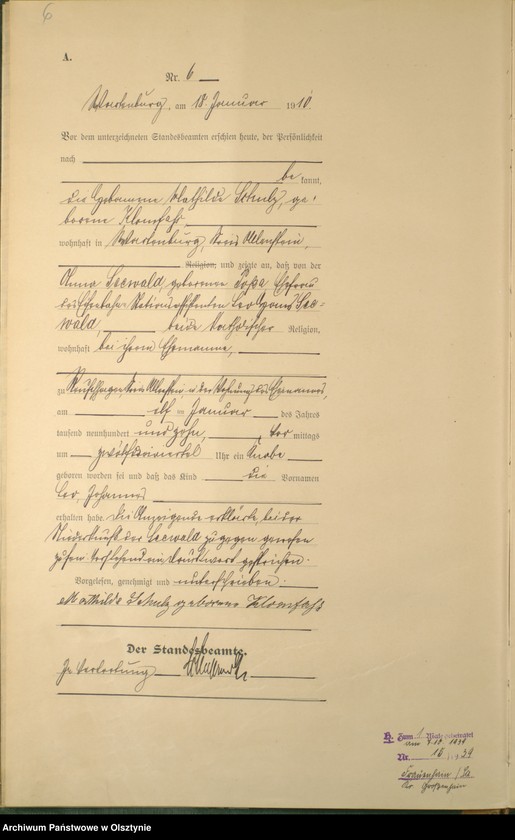 6
A.
Nr. 6
Wartenburg, am 18. Januar 1910.
Vor dem unterzeichneten Standesbeamten erschien heute, der Persönlichkeit
nach
be kannt,
die Hebamme Mathilde Schulz, ge-
borene Klomfaß
wohnhaft in Wartenburg, Kreis Allenstein,
Religion, und zeigte an, daß von der
Anna Seewald, geborene Ehefrau
des Leo Seewald,
wald, beide katholischer Religion,
wohnhaft bei ihrem Ehemanne,
zu Kreis Allenstein, in der Wohnung des Ehemannes,
am elf ten Januar des Jahres
tausend neunhundert und zehn, vor mittags
um zwölfdreiviertel Uhr ein Knabe
geboren worden sei und daß das Kind die Vornamen
Leo, Johannes
erhalten habe. Die Anzeigende erklärte, bei der
Niederkunft der Seewald zugegen gewesen
zu sein. Vorstehend ein Druckwort gestrichen.
Vorgelesen, genehmigt und unterschrieben.
Mathilde Schulz geborene Klomfaß
Der Standesbeamte.
In Vertretung
Nr. 16 39
Kr. Großenhain
Archiwum Państwowe w Olsztynie